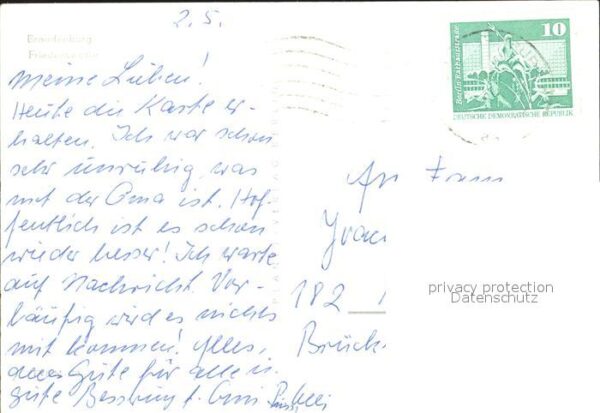 2.5.
Brandenburg
Meine Lieben!
Heute die Karte er-
halten. Ich war schon
sehr unruhig, was
mit der Oma ist. Hof-
fentlich ist es schon
wieder besser! Ich warte
auf Nachricht. Vor-
läufig wird es nichts
mit kommen! Alles,
alles Gute für alle u.
gute Besserung f. Omi
10
Berlin, Rathausstraße
DEUTSCHE DEMOKRATISCHE REPUBLIK
An Fam
182
Brück
privacy protection
Datenschutz